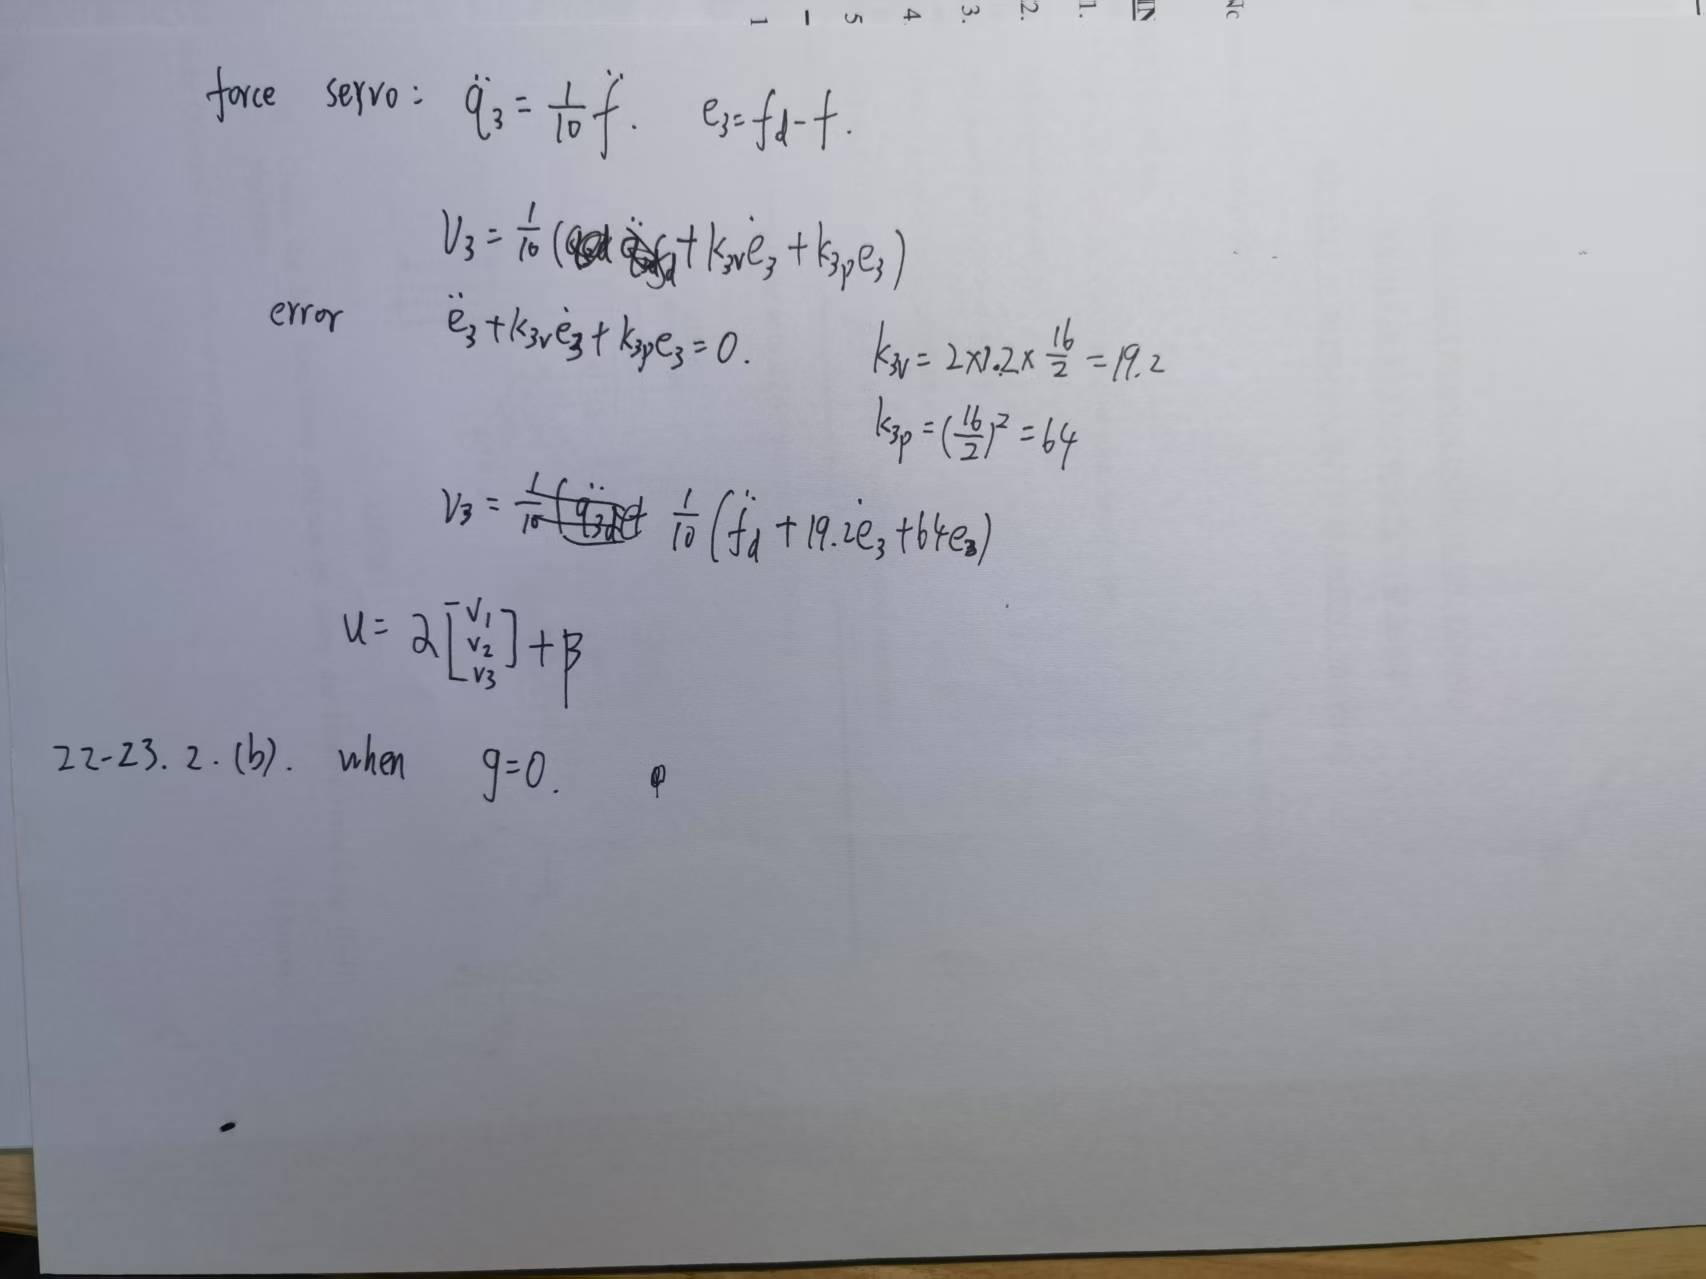 1 – 5 4 3. 2. 1. IN NC
force servo: q̈₃ = 1/10 f̈. e₃ = f_d - f.
V₃ = 1/10 ( f̈_d + k₃ᵥė₃ + k₃ₚe₃)
error ë₃ + k₃ᵥė₃ + k₃ₚe₃ = 0. k₃ᵥ = 2×1.2× 16/2 = 19.2
k₃ₚ = (16/2)² = 64
V₃ = 1/10 (f̈_d + 19.2ė₃ + 64e₃)
u = α [V₁ V₂ V₃] + β
22-23. 2. (b). when g=0.